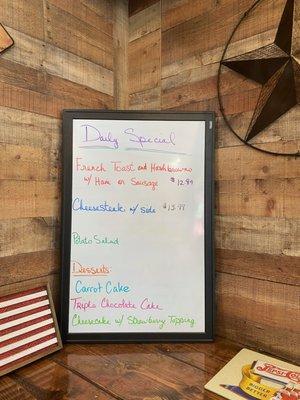 Daily Special
French Toast and Hashbrowns
w/ Ham or Sausage $12.99
Cheesesteak w/ side $13.99
Potato Salad
Desserts:
Carrot Cake
Triple Chocolate Cake
Cheesecake w/ Strawberry Topping
PEPSI-COLA
BIGGER
BETTER